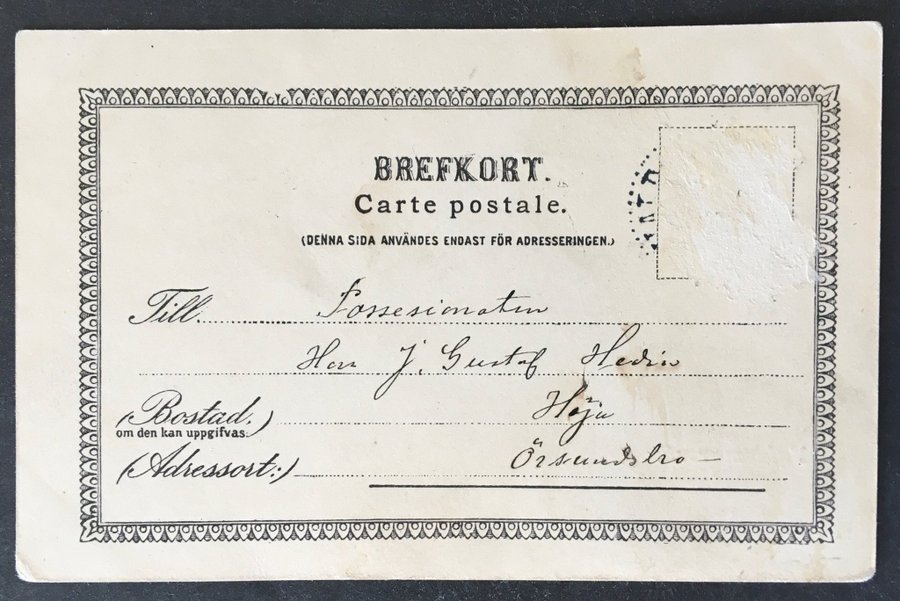 BREFKORT.
Carte postale.
(DENNA SIDA ANVÄNDES ENDAST FÖR ADRESSERINGEN.)
Till Possesionaten
Herr J. Gustaf Hedin
(Bostad.) Höja
om den kan uppgifvas.
(Adressort:) Örsundsbro